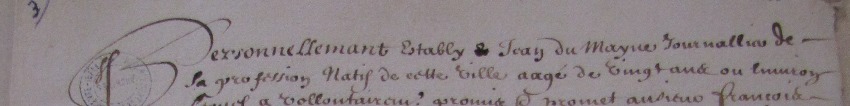 3
Personnellemant Estably & Jean du Mayne Journallier de
sa profession Natif de cette ville aagé de vingt ans ou Environ
a vollontairem! promis & promet au sieur francois